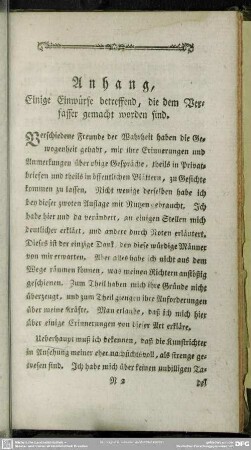 Anhang,
Einige Einwürfe betreffend, die dem Ver-
fasser gemacht worden sind.
Verschiedene Freunde der Wahrheit haben die Ge-
wogenheit gehabt, mir ihre Erinnerungen und
Anmerkungen über obige Gespräche, theils in Privat-
briefen und theils in öffentlichen Blättern, zu Gesichte
kommen zu lassen. Nicht wenige derselben habe ich
bey dieser zweyten Auflage mit Nutzen gebraucht. Ich
habe hier und da verändert, an einigen Stellen mich
deutlicher erklärt, und andere durch Noten erläutert.
Dieses ist der einzige Dank, den diese würdige Männer
von mir erwarten. Aber alles habe ich nicht aus dem
Wege räumen können, was meinen Richtern anstößig
geschienen. Zum Theil haben mich ihre Gründe nicht
überzeugt, und zum Theil giengen ihre Anforderungen
über meine Kräfte. Man erlaube, daß ich mich hier
über einige Erinnerungen von dieser Art erkläre.
Ueberhaupt muß ich bekennen, daß die Kunstrichter
in Ansehung meiner eher nachsichtsvoll, als strenge ge-
wesen sind. Ich habe mich über keinen unbilligen Ta-
R 2 del